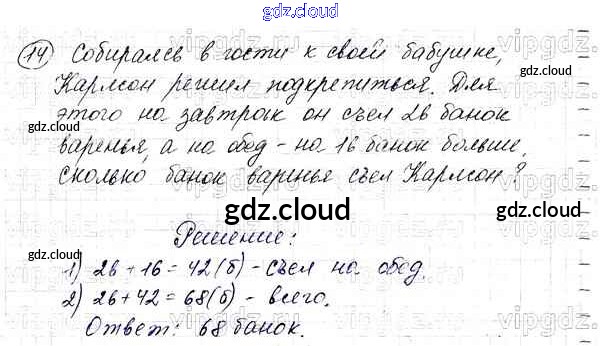 gdz.cloud
14 Собираясь в гости к своей бабушке,
Карлсон решил подкрепиться. Для
этого на завтрак он съел 26 банок
варенья, а на обед - на 16 банок больше,
Сколько банок варенья съел Карлсон?
gdz.cloud
Решение:
1) 26 + 16 = 42 (б) - съел на обед.
2) 26 + 42 = 68 (б) - всего.
Ответ: 68 банок.
gdz.cloud
gdz.cloud
gdz.cloud
gdz.cloud
gdz.cloud
gdz.cloud